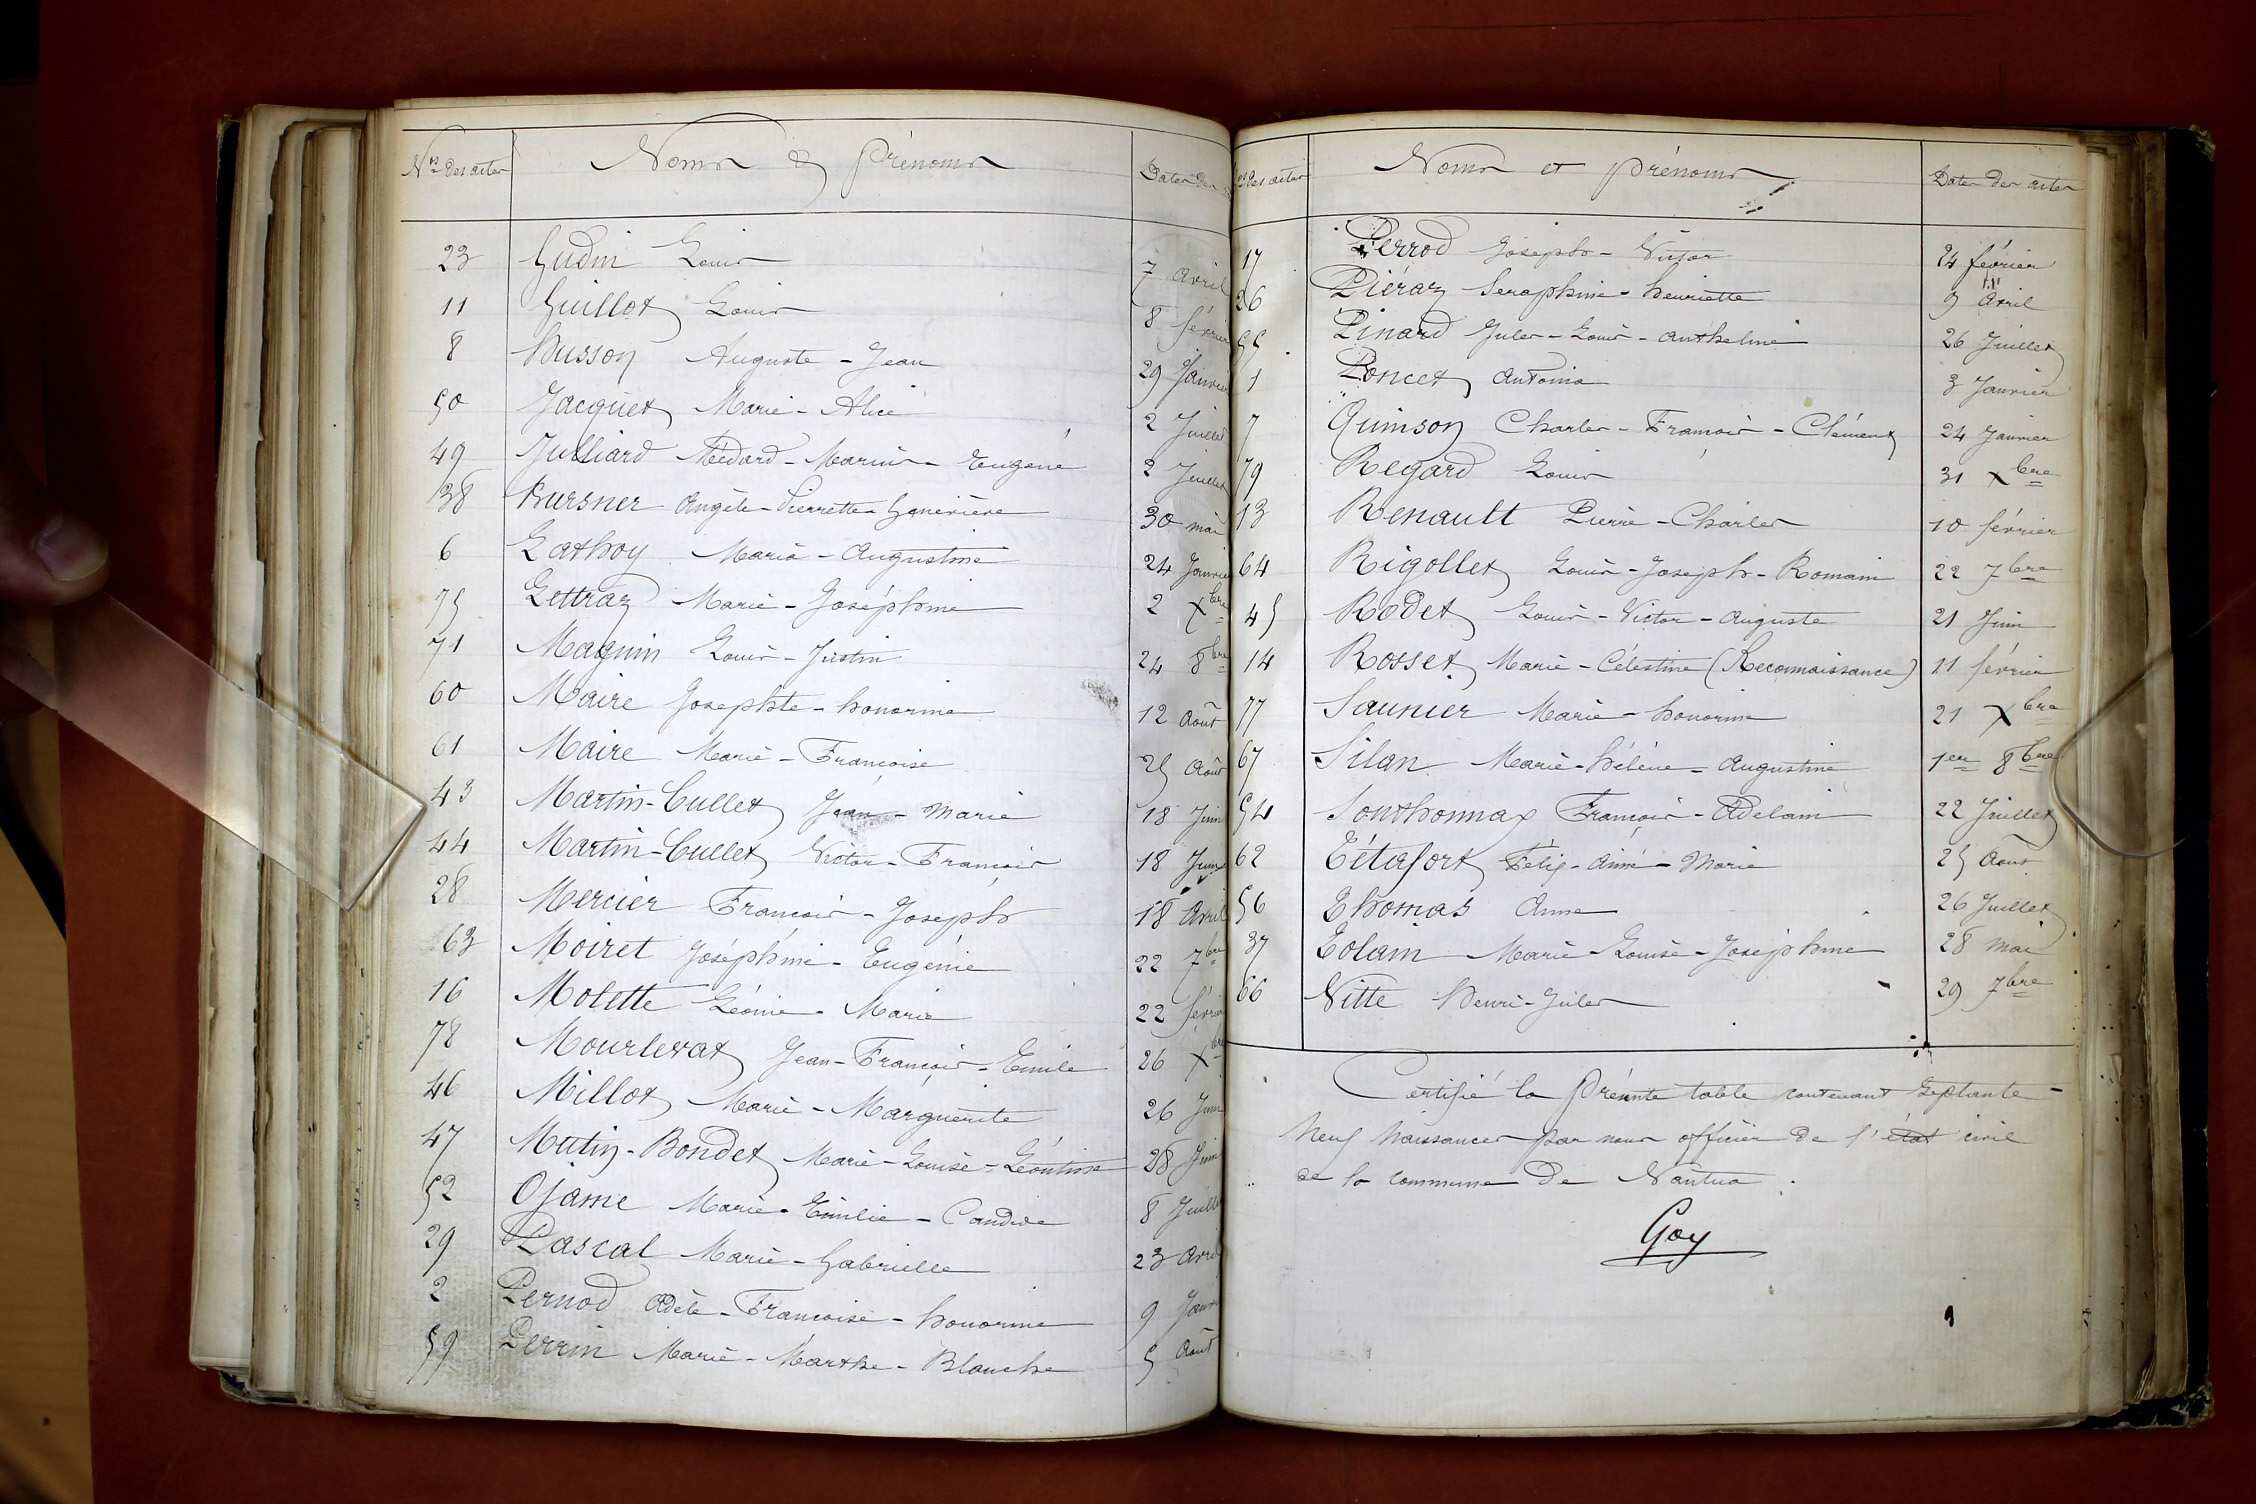 Nos des actes Noms & Prénoms Dates des
23 Gudin Louis 7 Avril
11 Guillot Louis 8 février
8 Husson Auguste - Jean 29 Janvier
50 Jacquet Marie - Alice 2 Juillet
49 Julliard Médard - Marius - Eugène 2 Juillet
38 Bursner Angèle - Pierrette - Geneviève 30 mai
6 Lathoy Maria - Augustine 24 Janvier
75 Lettraz Marie - Joséphine 2 Xbre
71 Magnin Louis - Justin 24 8bre
60 Maire Josephte - honorine 12 Août
61 Maire Marie - Françoise 25 Août
43 Martin-Cullet Jean - Marie 18 Juin
44 Martin-Cullet Victor - François 18 Juin
28 Mercier François - Joseph 18 Avril
63 Moiret Joséphine - Eugénie 22 7bre
16 Molette Léonie - Marie 22 février
78 Mourlevat Jean - François - Emile 26 Xbre
46 Millot Marie - Marguerite 26 Juin
47 Mutin-Bondet Marie - Louise - Léontine 28 Juin
52 Ojame Marie - Emilie - Candide 8 Juillet
29 Pascal Marie - Gabrielle 23 Avril
2 Pernod Adèle - Françoise - honorine 9 Janvier
59 Perrin Marie - Marthe - Blanche 5 Août
des actes Noms et Prénoms Dates des actes
17 Perrod Joseph - Victor 24 février
26 Piéraz Seraphine - henriette 9 Avril
55 Pinard Jules - Louis - Anthelme 26 Juillet
1 Poncet Antonia 3 Janvier
7 Quinson Charles - François - Clément 24 Janvier
79 Regard Louis 31 Xbre
13 Renault Pierre - Charles 10 février
64 Rigollet Louis - Joseph - Romain 22 7bre
45 Rodet Louis - Victor - Auguste 21 Juin
14 Rosset Marie - Célestine (Reconnaissance) 11 février
77 Saunier Marie - honorine 21 Xbre
67 Silan Marie - hélène - Augustine 1er 8bre
54 Sonthonnax François - Adelain 22 Juillet
62 Tétafort Félix - Aimé - Marie 25 Août
56 Thomas Anne 26 Juillet
37 Tolain Marie - Louise - Joséphine 28 mai
66 Vitte Henri - Jules 29 7bre
Certifié la présente table contenant septante -
neuf naissances par nous officier de l'état civil
de la commune de Nantua.
Goy